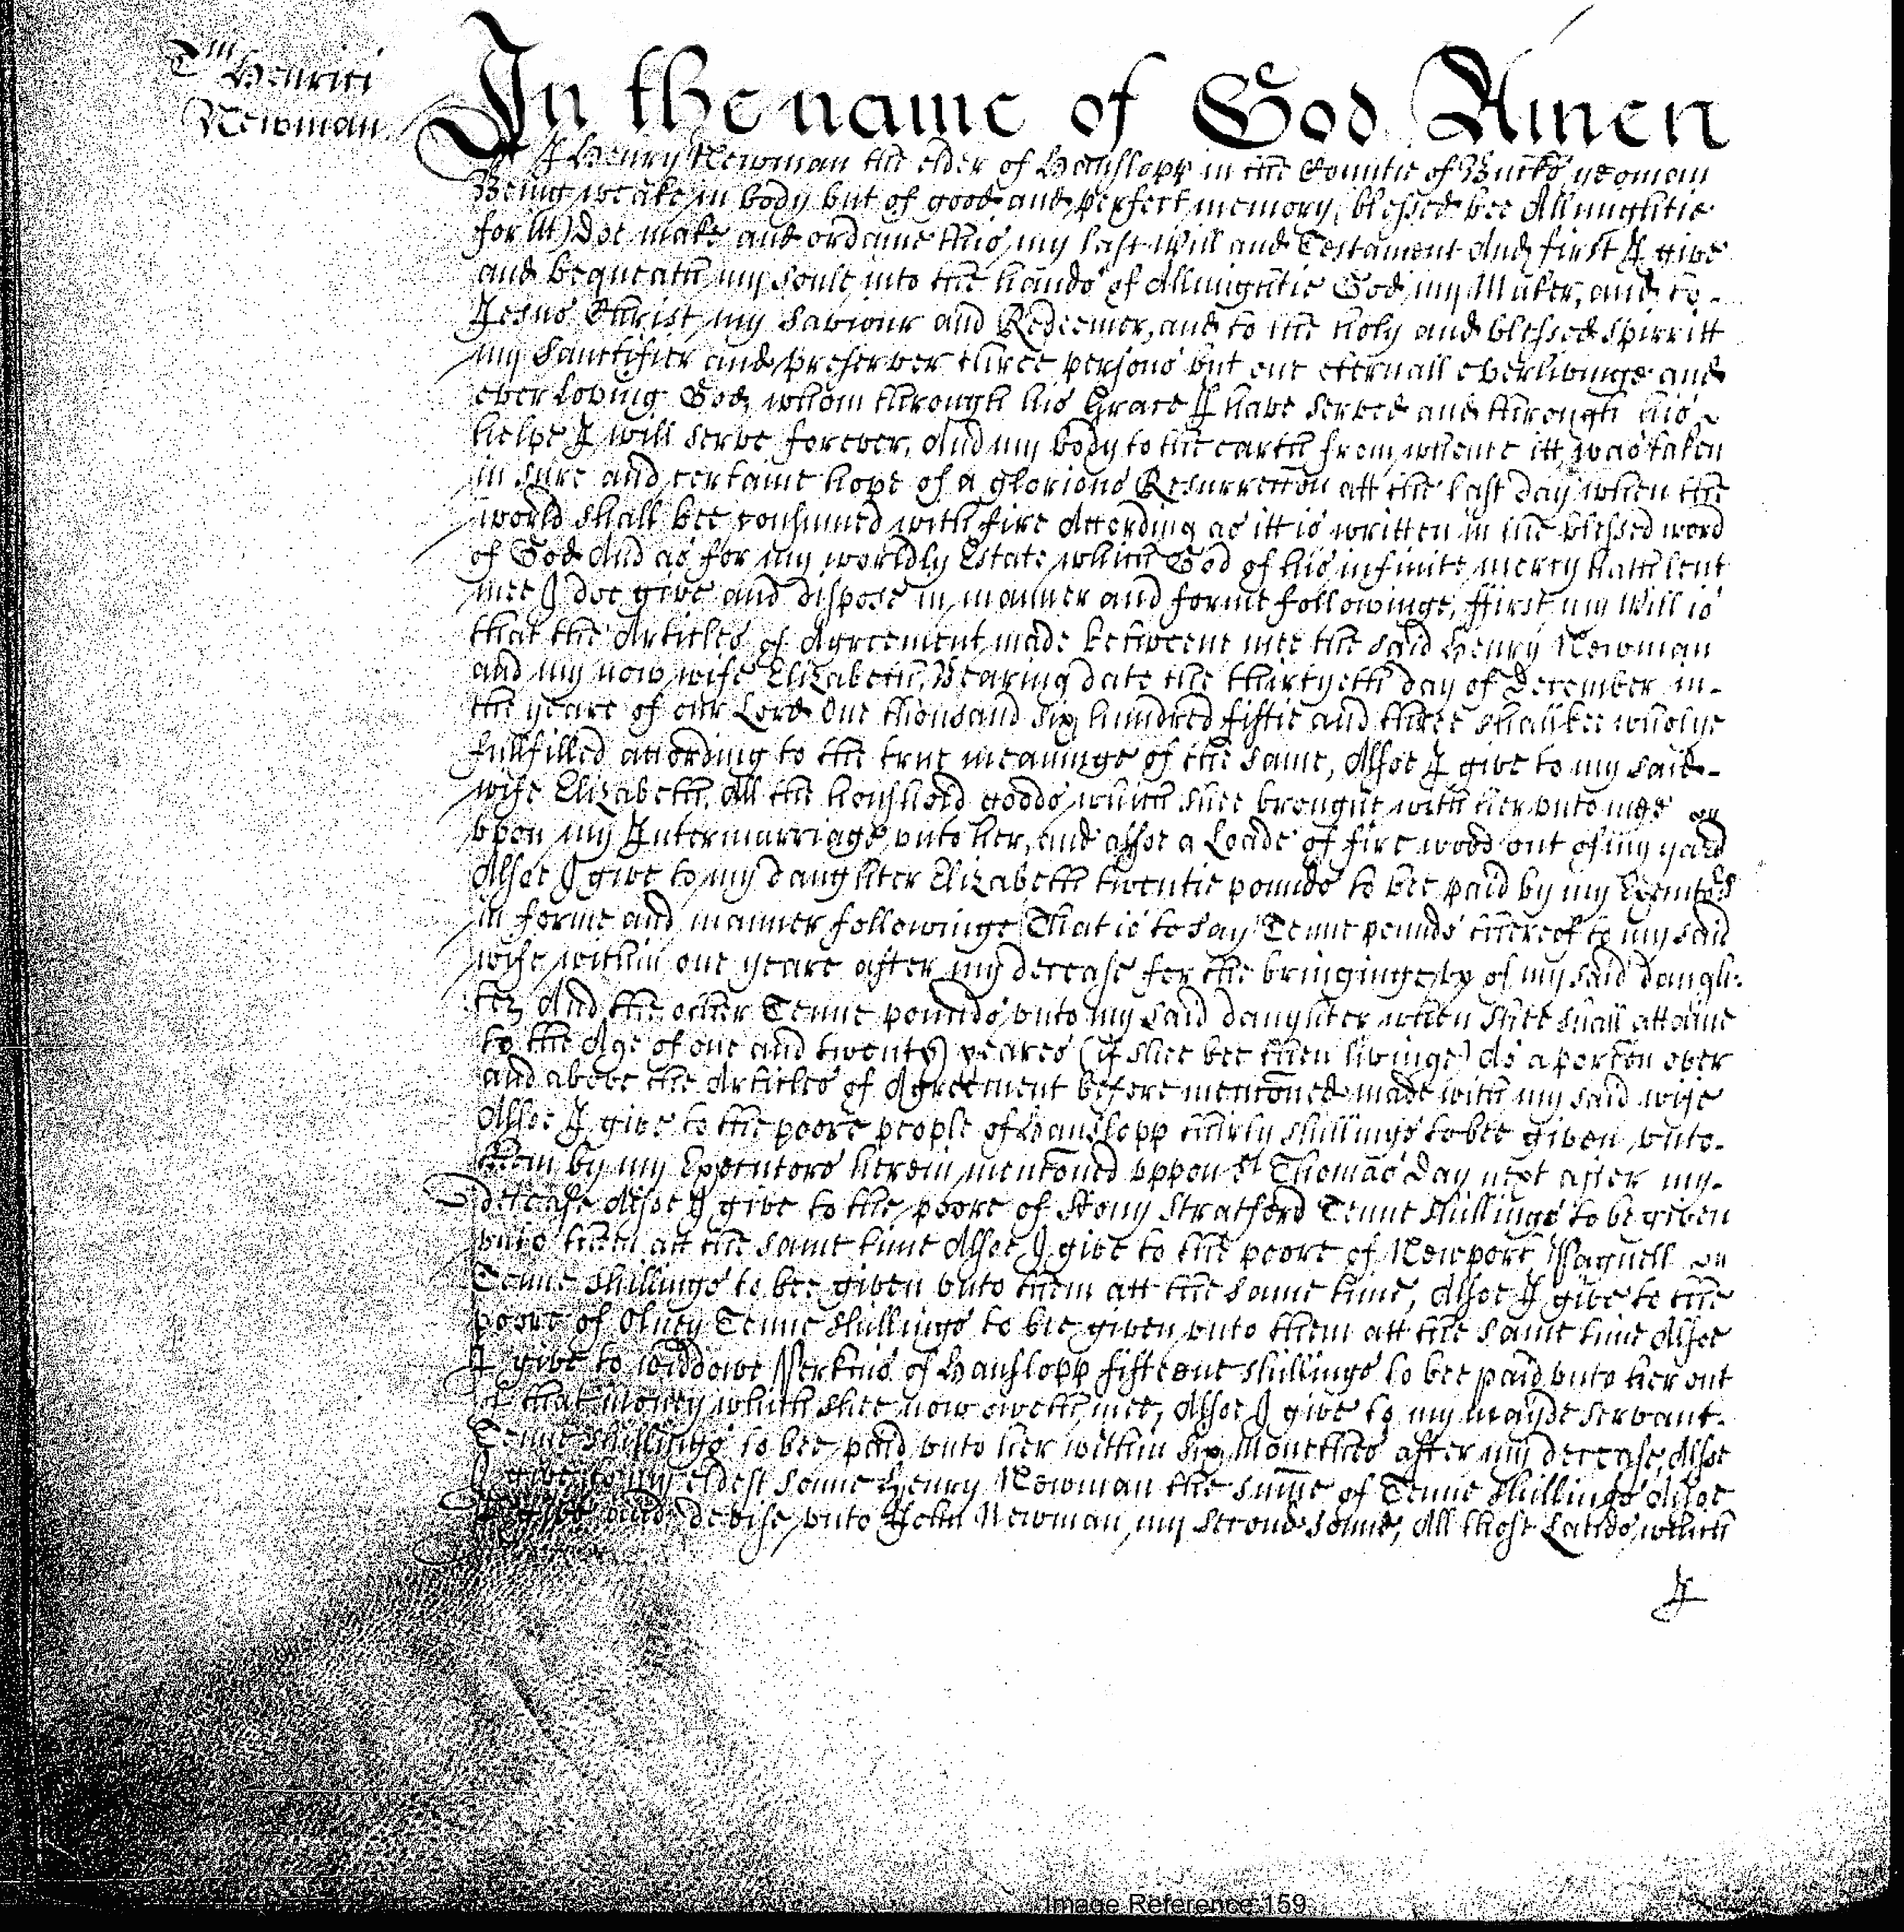 Tm
Henrici
Newman.
In the name of God Amen
I Henry Newman the elder of Hanslopp in the Countie of Bucks yeoman
Being weake in body but of good and perfect memory, blessed bee Allmightie
for itt) Doe make and ordaine this my last Will and Testament And first I give
and bequeath my soule into the hands of Allmightie God my Maker, and to
Jesus Christ my Saviour and Redeemer, and to the holy and blessed Spirritt
my Sanctifier and preserver three persons but one eternall everlivinge and
ever loving God, whom through his Grace I have served and through his
helpe I will serve forever, And my body to the earth from whence itt was taken
in sure and certaine hope of a glorious Resurrecc̃on att the last day when the
world shall bee consumed with fire According as itt is written in the blessed word
of God And as for my worldly Estate which God of his infinite mercy hath lent
mee I doe give and dispose in manner and forme followinge, ffirst my Will is
that the Articles of Agreement made betweene mee the said Henry Newman
and my now wife Elizabeth, Bearing date the thirtyeth day of December in
the yeare of our Lord One thousand six hundred fiftie and three shall bee wholye
fullfilled according to the true meaninge of the same, Alsoe I give to my said
wife Elizabeth, All the houshold goods which shee brought with her vnto mee
vpon my Intermarriage vnto her, and alsoe a Loade of fire wood out of my yard
Alsoe I give to my daughter Elizabeth twentie pounds to bee paid by my Executors
in forme and manner followinge That is to say Tenne pounds thereof to my said
wife within one yeare after my decease for the bringinge vp of my said daugh-
ter, And the other Tenne pounds vnto my said daughter when shee shall attaine
to the Age of one and twenty yeares (if shee bee then livinge) As a porc̃on over
and above the Articles of Agreement before menc̃oned made with my said wife
Alsoe I give to the poore people of Hanslopp thirty shillings to bee given vnto
them by my Executors herein menc̃oned vppon St Thomas Day next after my
decease Alsoe I give to the poore of Stony Stratford Tenne shillings to be given
vnto them att the same time Alsoe I give to the poore of Newport Pagnell
Tenne shillings to bee given vnto them att the same time, Alsoe I give to the
poore of Olney Tenne shillings to bee given vnto them att the same time Alsoe
I give to widdowe Perkins of Hanslopp fifteene shillings to bee paid vnto her out
of that money which shee now oweth mee, Alsoe I give to my mayde servant
Tenne shillings to bee paid vnto her within six Monethes after my decease, Alsoe
I give to my eldest sonne Henry Newman the sum̃e of Tenne shillings Alsoe
I give and devise vnto John Newman my second sonne, All those Lands which
I
Image Reference:159